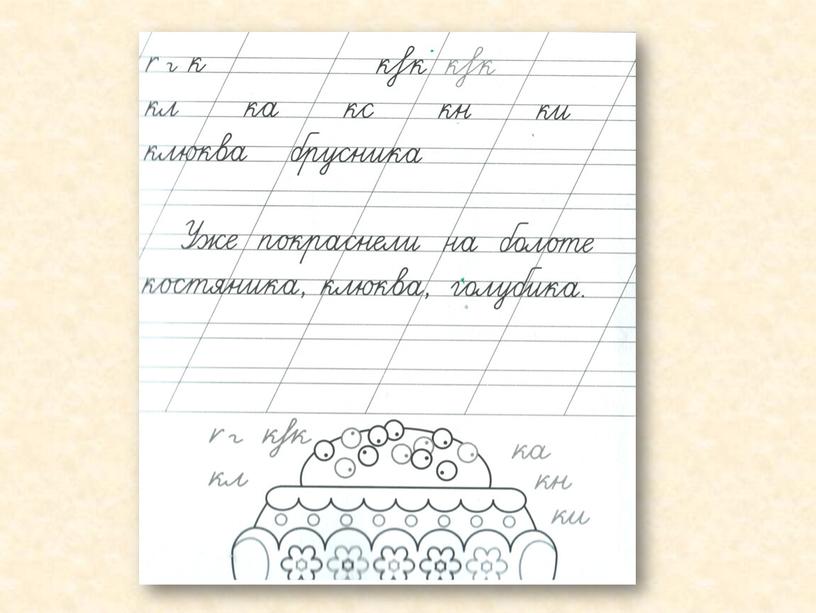 г г к кfк кfк
кл ка кс кн ки
клюква брусника
Уже покраснели на болоте
костяника, клюква, голубика.
г г кfк
ка
кл
кн
ки